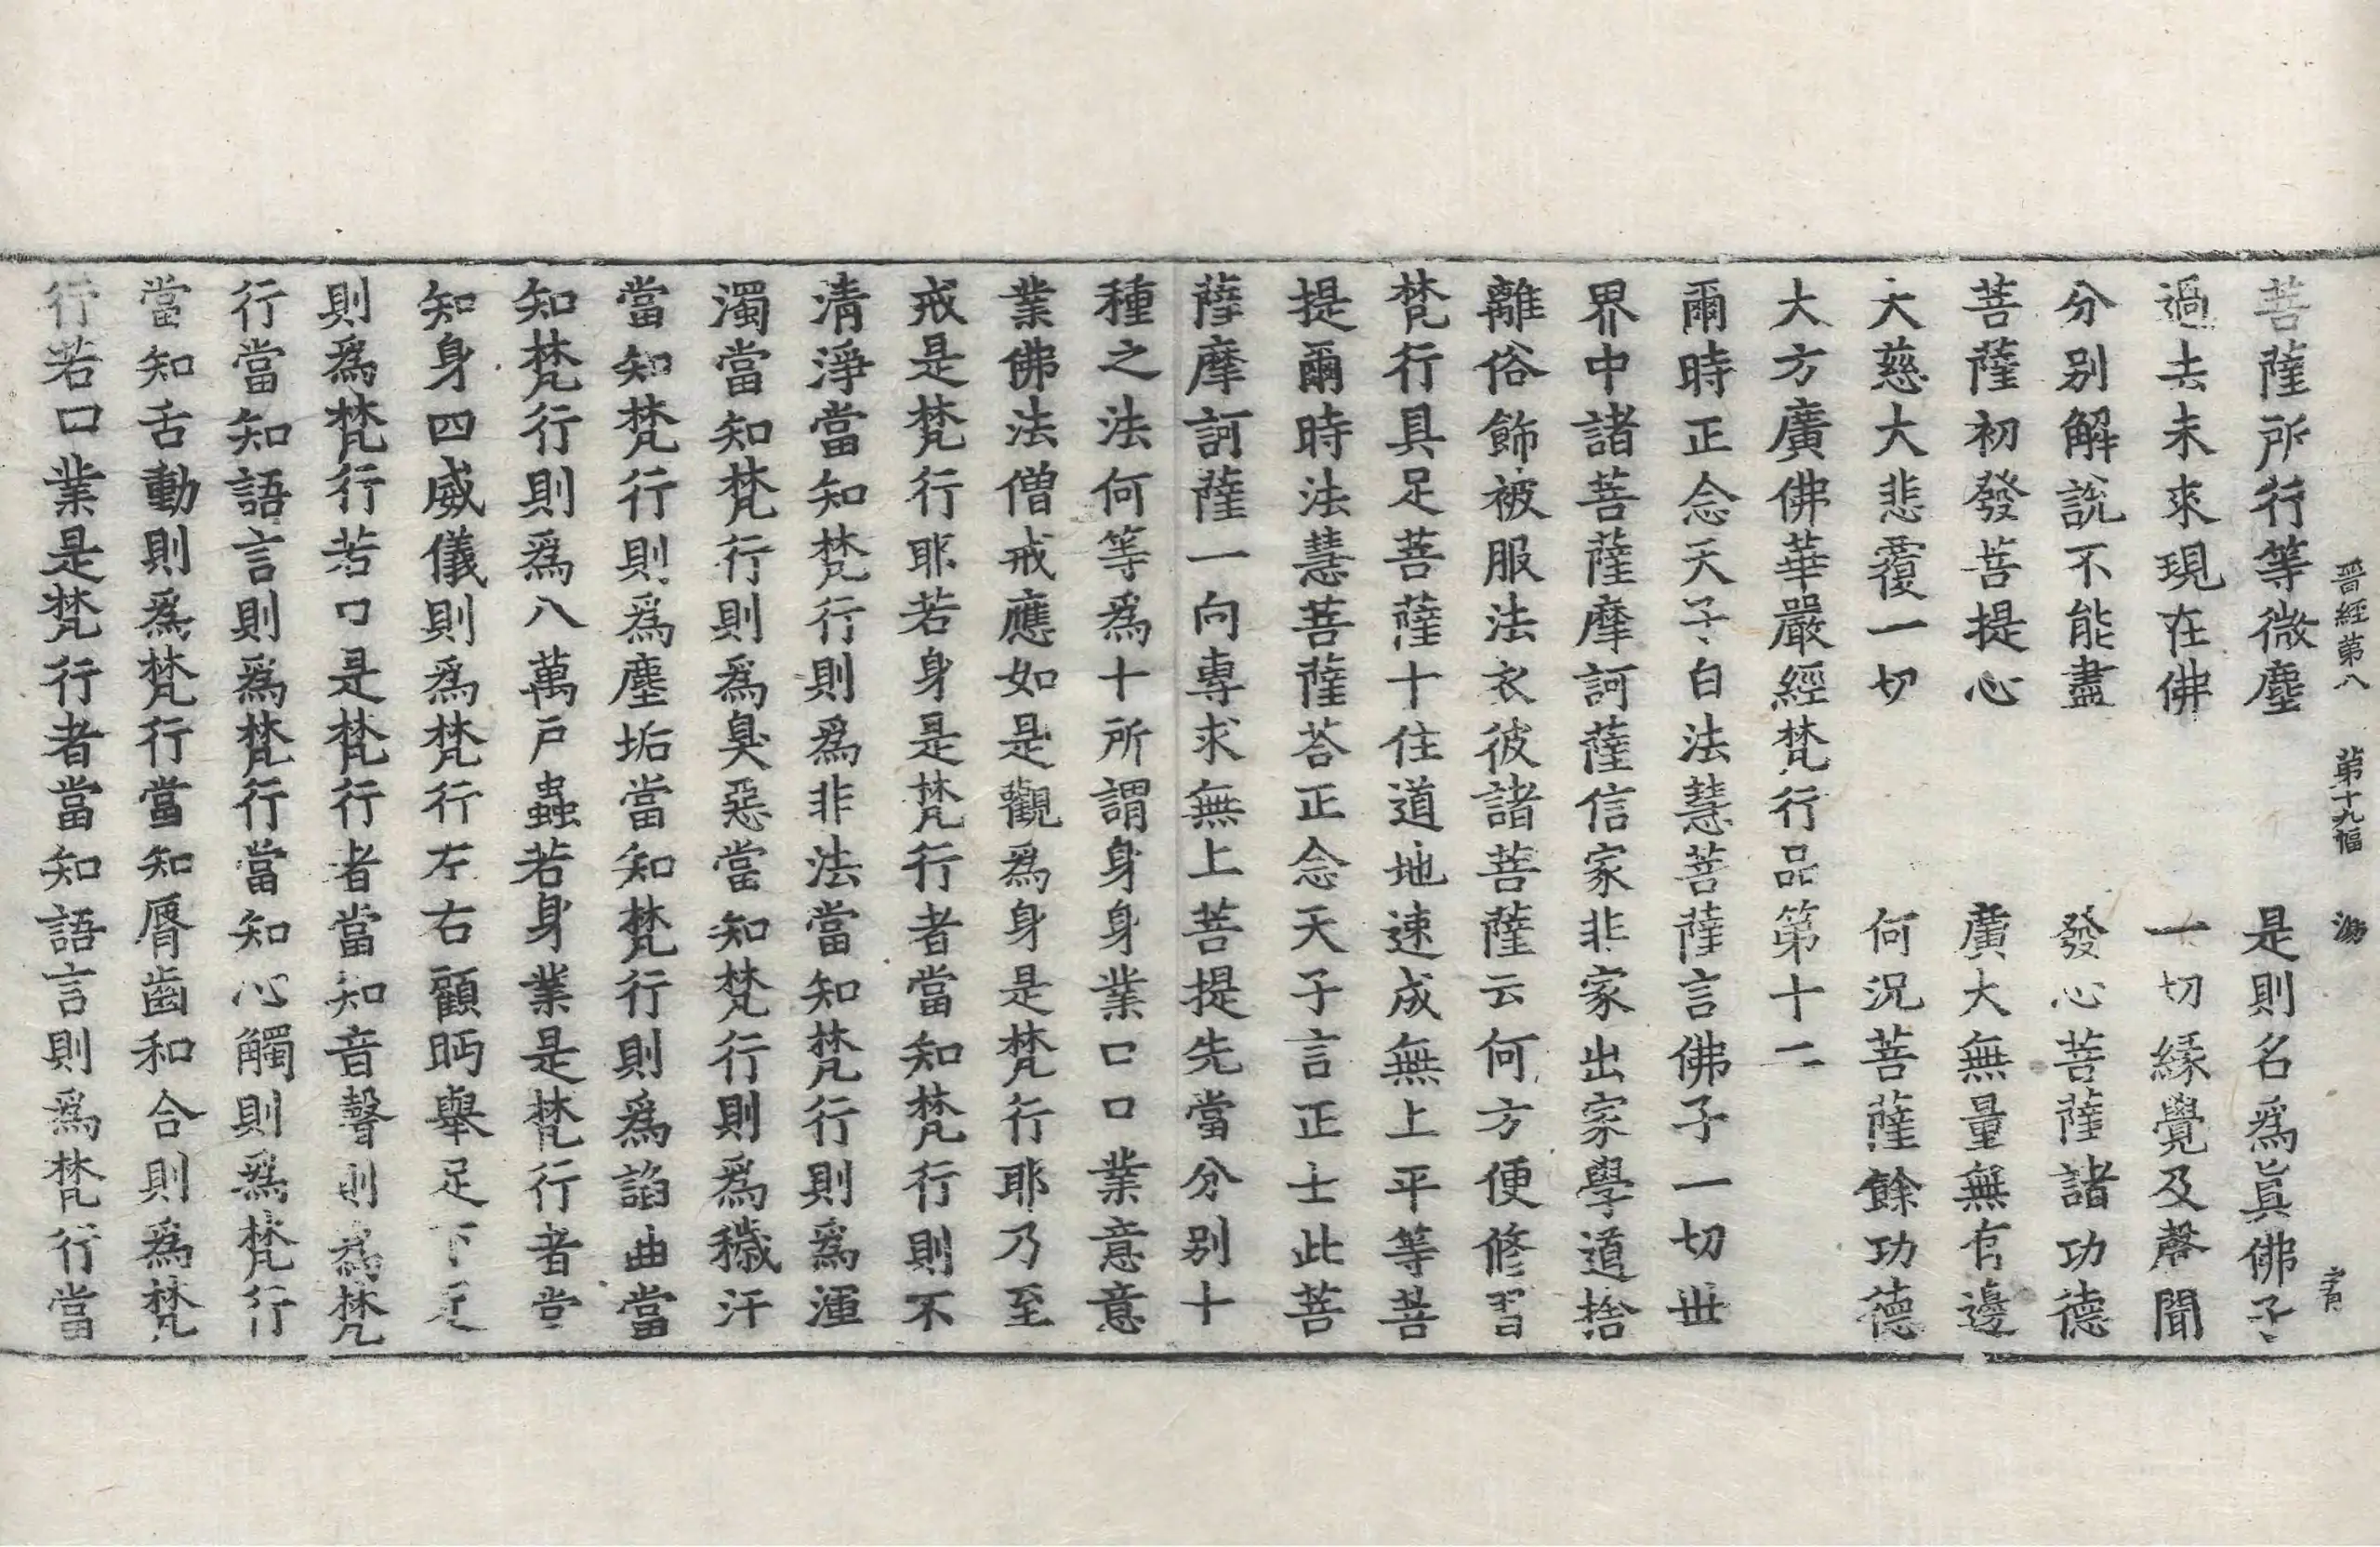 晉經第八 第十九幅 湯
菩薩所行等微塵 是則名爲眞佛子
過去未來現在佛 一切緣覺及聲聞
分別解說不能盡 發心菩薩諸功德
菩薩初發菩提心 廣大無量無有邊
大慈大悲覆一切 何況菩薩餘功德
大方廣佛華嚴經梵行品第十二
爾時正念天子白法慧菩薩言佛子一切世
界中諸菩薩摩訶薩信家非家出家學道捨
離俗飾被服法衣彼諸菩薩云何方便修習
梵行具足菩薩十住道地速成無上平等菩
提爾時法慧菩薩荅正念天子言正士此菩
薩摩訶薩一向專求無上菩提先當分別十
種之法何等爲十所謂身身業口口業意意
業佛法僧戒應如是觀爲身是梵行耶乃至
戒是梵行耶若身是梵行者當知梵行則不
清淨當知梵行則爲非法當知梵行則爲湩
濁當知梵行則爲臭惡當知梵行則爲穢汙
當知梵行則爲塵垢當知梵行則爲諂曲當
知梵行則爲八萬戶蟲若身業是梵行者當
知身四威儀則爲梵行左右顧眄舉足下足
則爲梵行若口是梵行者當知音聲則爲梵
行當知語言則爲梵行當知心觸則爲梵行
當知舌動則爲梵行當知脣齒和合則爲梵
行若口業是梵行者當知語言則爲梵行當